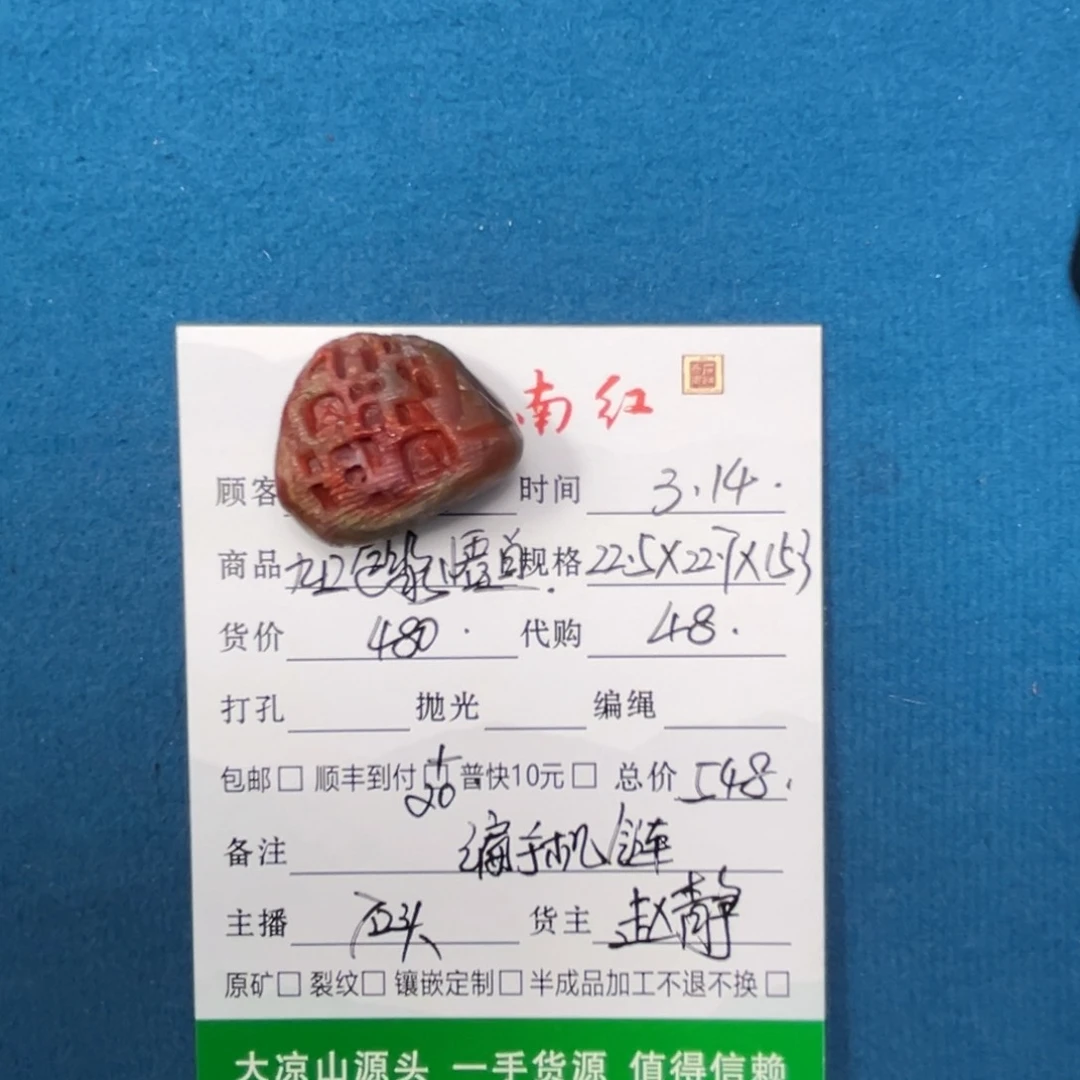 南红
顾客 时间 3.14.
商品 九口包浆覆单. 规格 22.5X22.7X15.3
货价 480. 代购 48.
打孔 抛光 编绳
包邮□ 顺丰到付□ +20 普快10元□ 总价 548.
备注 编手机链
主播 石头 货主 赵静
原矿□ 裂纹□ 镶嵌定制□ 半成品加工不退不换□
大凉山源头 一手货源 值得信赖